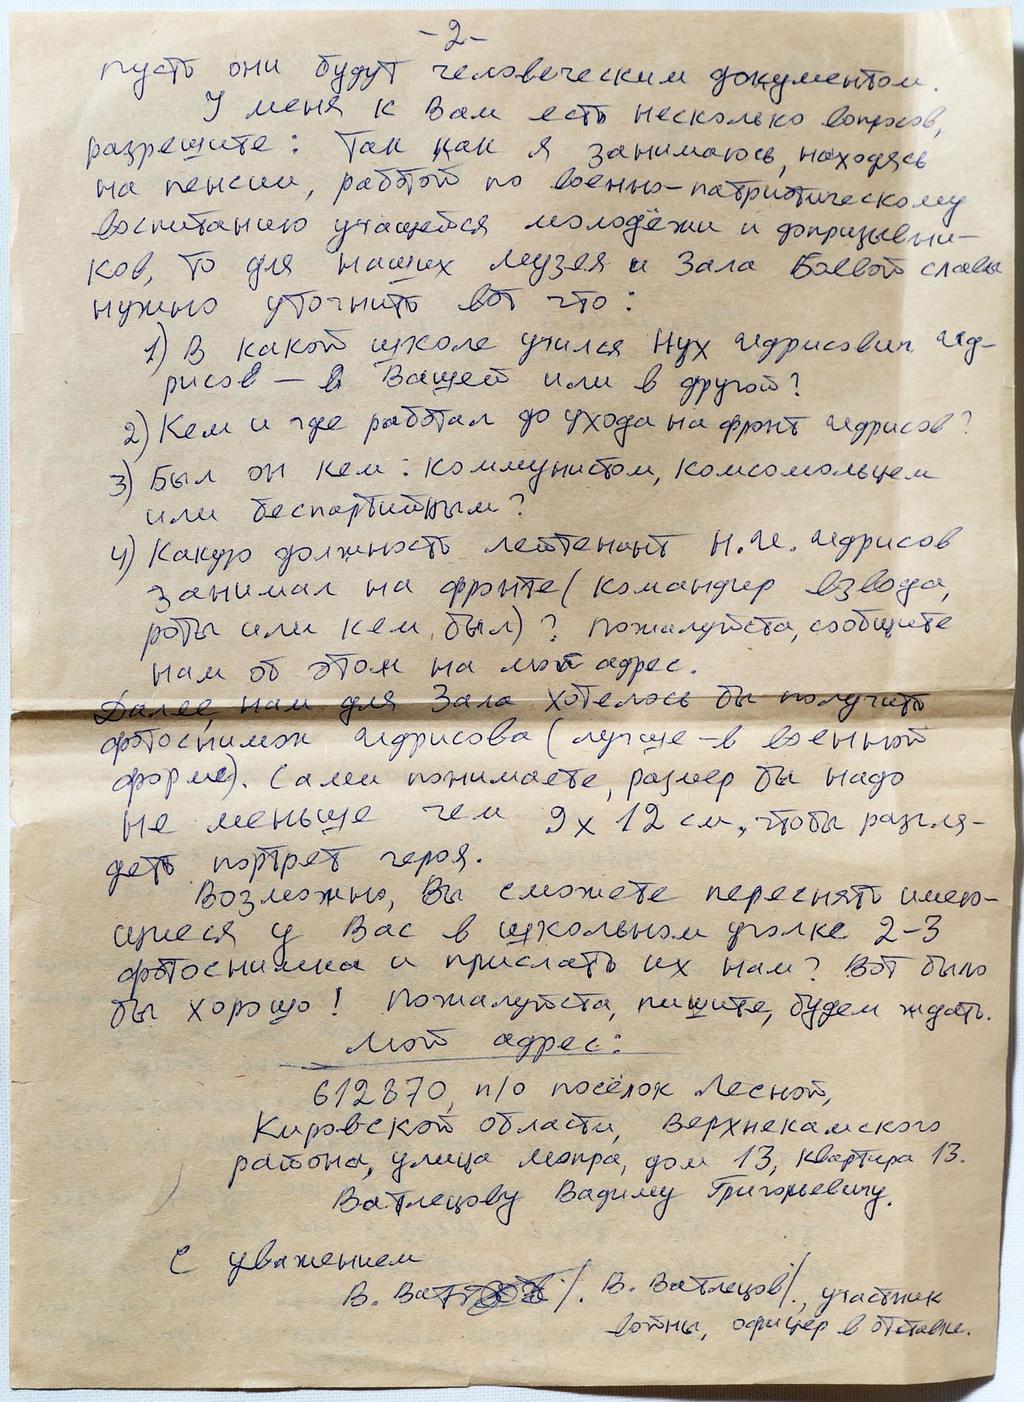 -2-
пусть они будут человеческим документом.
У меня к Вам есть несколько вопросов,
разрешите: Так как я занимаюсь, находясь
на пенсии, работой по военно-патриотическому
воспитанию учащейся молодёжи и допризывни-
ков, то для наших музея и Зала Боевой славы
нужно уточнить вот что:
1) В какой школе учился Нух Идрисович Ид-
рисов — в Вашей или в другой?
2) Кем и где работал до ухода на фронт Идрисов?
3) Был он кем: коммунистом, комсомольцем
или беспартийным?
4) Какую должность лейтенант Н.И. Идрисов
занимал на фронте (командир взвода,
роты или кем был)? Пожалуйста, сообщите
нам об этом на мой адрес.
Далее, нам для Зала хотелось бы получить
фотоснимок Идрисова (лучше – в военной
форме). Сами понимаете, размер бы надо
не меньше чем 9х12 см, чтобы разгля-
деть портрет героя.
Возможно, Вы сможете переснять имею-
щиеся у Вас в школьном уголке 2-3
фотоснимка и прислать их нам? Вот было
бы хорошо! Пожалуйста, пишите, будем ждать.
Мой адрес:
612870, п/о посёлок Лесной,
Кировской области, Верхнекамского
района, улица Мопра, дом 13, квартира 13.
Ватлецову Вадиму Григорьевичу.
С уважением
В. /В. Ватлецов/, участник
войны, офицер в отставке.